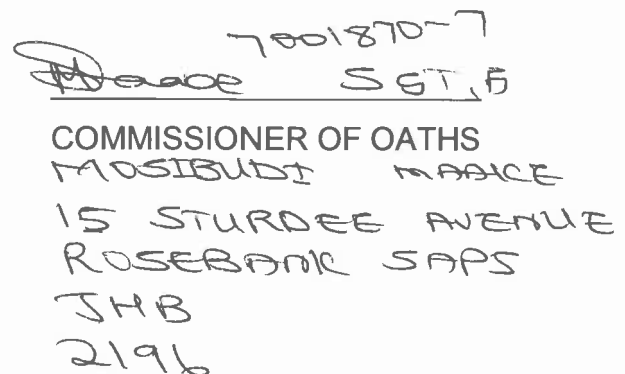 7001870-7
SGT,
COMMISSIONER OF OATHS
MOSIBUDI MAAKE
15 STURDEE AVENUE
ROSEBANK SAPS
JHB
2196